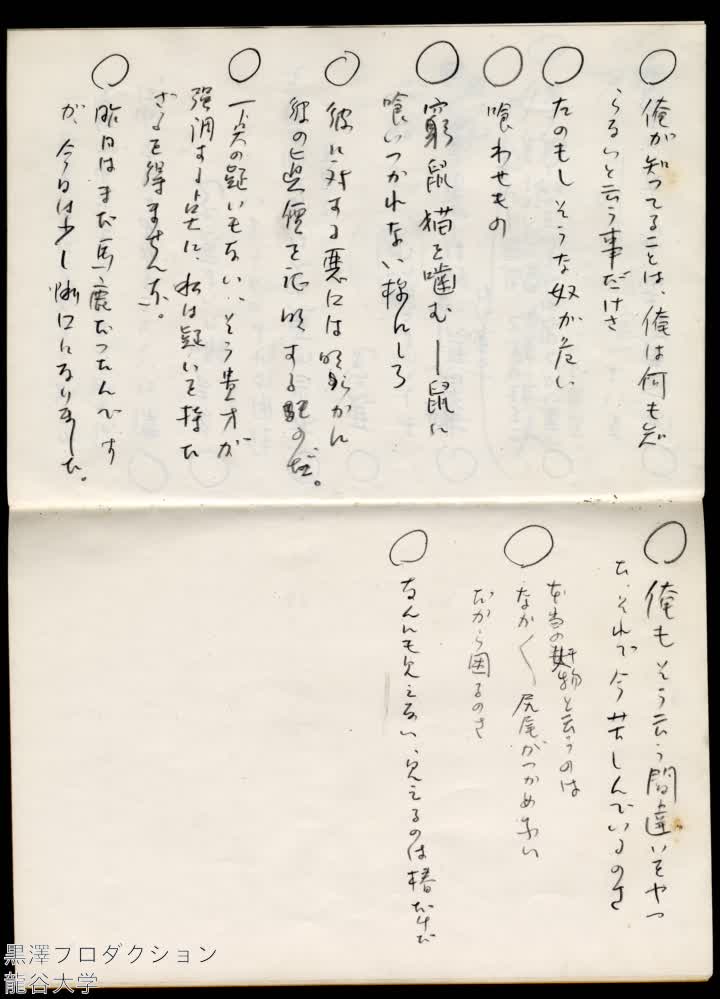 ○ 俺が知つてることは、俺は何も知
らないと云う事だけさ
○ たのもしそうな奴が危い
○ 喰わせもの
○ 窮鼠猫を噛むー鼠に
喰いつかれない様にしろ
○ 彼に対する悪には明らかに
彼の真價を証明するものだ。
○ 一点の疑いもない、そう貴方が
強調する点に、私は疑いを持た
ざるを得ませんな。
○ 昨日はまだ馬鹿だつたんです
が、今日は少し悧口になりました。
○ 俺もそう云う間違いをやつ
た、それで今苦しんでいるのさ
○ 本当の奸物と云うのは
なかなか〳〵尻尾がつかめない
だから困るのさ
○ なんにも見えない、見えるのは椿だけだ
黒澤プロダクション
龍谷大学